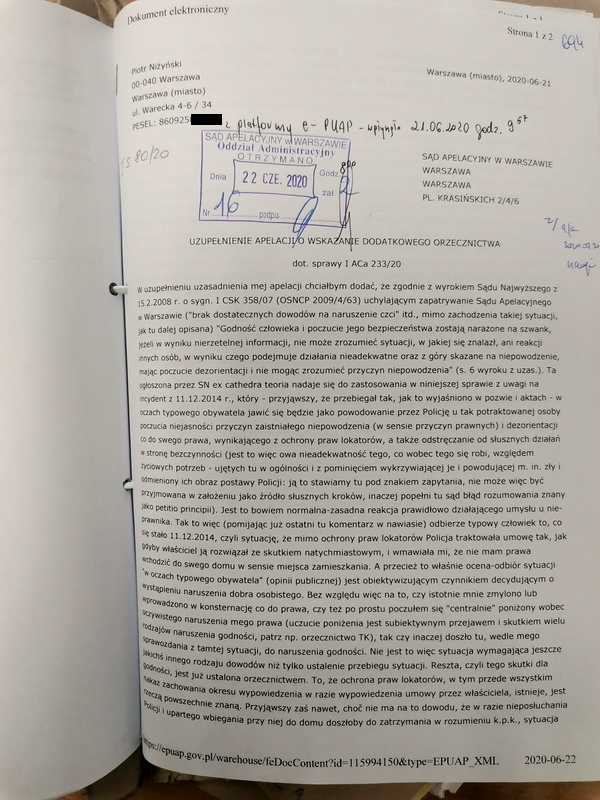 Dokument elektroniczny
Strona 1 z 2
694
Piotr Niżyński
00-040 Warszawa
Warszawa (miasto)
ul. Warecka 4-6 / 34
PESEL: 860925
Warszawa (miasto), 2020-06-21
z platformy e-PUAP - wpłynęło 21.06.2020 godz. 9⁵⁷
80/20
SĄD APELACYJNY w WARSZAWIE
Oddział Administracyjny
OTRZYMANO
Dnia 22 CZE. 2020 Godz.
zał. 2
Nr 16 podpis
SĄD APELACYJNY W WARSZAWIE
WARSZAWA
WARSZAWA
PL. KRASIŃSKICH 2/4/6
UZUPEŁNIENIE APELACJI O WSKAZANIE DODATKOWEGO ORZECZNICTWA
dot. sprawy I ACa 233/20
W uzupełnieniu uzasadnienia mej apelacji chciałbym dodać, że zgodnie z wyrokiem Sądu Najwyższego z
15.2.2008 r. o sygn. I CSK 358/07 (OSNCP 2009/4/63) uchylającym zapatrywanie Sądu Apelacyjnego
w Warszawie ("brak dostatecznych dowodów na naruszenie czci" itd., mimo zachodzenia takiej sytuacji,
jak tu dalej opisana) "Godność człowieka i poczucie jego bezpieczeństwa zostają narażone na szwank,
jeżeli w wyniku nierzetelnej informacji, nie może zrozumieć sytuacji, w jakiej się znalazł, ani reakcji
innych osób, w wyniku czego podejmuje działania nieadekwatne oraz z góry skazane na niepowodzenie,
mając poczucie dezorientacji i nie mogąc zrozumieć przyczyn niepowodzenia" (s. 6 wyroku z uzas.). Ta
ogłoszona przez SN ex cathedra teoria nadaje się do zastosowania w niniejszej sprawie z uwagi na
incydent z 11.12.2014 r., który - przyjąwszy, że przebiegał tak, jak to wyjaśniono w pozwie i aktach - w
oczach typowego obywatela jawić się będzie jako powodowanie przez Policję u tak potraktowanej osoby
poczucia niejasności przyczyn zaistniałego niepowodzenia (w sensie przyczyn prawnych) i dezorientacji
co do swego prawa, wynikającego z ochrony praw lokatorów, a także odstręczanie od słusznych działań
w stronę bezczynności (jest to więc owa nieadekwatność tego, co wobec tego się robi, względem
życiowych potrzeb - ujętych tu w ogólności i z pominięciem wykrzywiającej je i powodującej m. in. zły i
odmieniony ich obraz postawy Policji: ją to stawiamy tu pod znakiem zapytania, nie może więc być
przyjmowana w założeniu jako źródło słusznych kroków, inaczej popełni tu sąd błąd rozumowania znany
jako petitio principii). Jest to bowiem normalna-zasadna reakcja prawidłowo działającego umysłu u nie-
prawnika. Tak to więc (pomijając już ostatni tu komentarz w nawiasie) odbierze typowy człowiek to, co
się stało 11.12.2014, czyli sytuację, że mimo ochrony praw lokatorów Policja traktowała umowę tak, jak
gdyby właściciel ją rozwiązał ze skutkiem natychmiastowym, i wmawiała mi, że nie mam prawa
wchodzić do swego domu w sensie miejsca zamieszkania. A przecież to właśnie ocena-odbiór sytuacji
"w oczach typowego obywatela" (opinii publicznej) jest obiektywizującym czynnikiem decydującym o
wystąpieniu naruszenia dobra osobistego. Bez względu więc na to, czy istotnie mnie zmylono lub
wprowadzono w konsternację co do prawa, czy też po prostu poczułem się "centralnie" poniżony wobec
oczywistego naruszenia mego prawa (uczucie poniżenia jest subiektywnym przejawem i skutkiem wielu
rodzajów naruszenia godności, patrz np. orzecznictwo TK), tak czy inaczej doszło tu, wedle mego
sprawozdania z tamtej sytuacji, do naruszenia godności. Nie jest to więc sytuacja wymagająca jeszcze
jakichś innego rodzaju dowodów niż tylko ustalenie przebiegu sytuacji. Reszta, czyli tego skutki dla
godności, jest już ustalona orzecznictwem. To, że ochrona praw lokatorów, w tym przede wszystkim
nakaz zachowania okresu wypowiedzenia w razie wypowiedzenia umowy przez właściciela, istnieje, jest
rzeczą powszechnie znaną. Przyjąwszy zaś nawet, choć nie ma na to dowodu, że w razie nieposłuchania
Policji i upartego wbiegania przy niej do domu doszłoby do zatrzymania w rozumieniu k.p.k., sytuacja
https://epuap.gov.pl/warehouse/feDocContent?id=115994150&type=EPUAP_XML
2020-06-22